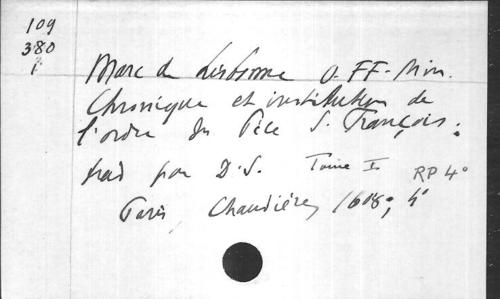 109
380
1
Marc de Lisbonne O. FF. Min.
Chronique et institution de
l'ordre du Père S. François.
trad par D. S. Tome I. RP 4°
Paris, Chaudière, 1608, 4°